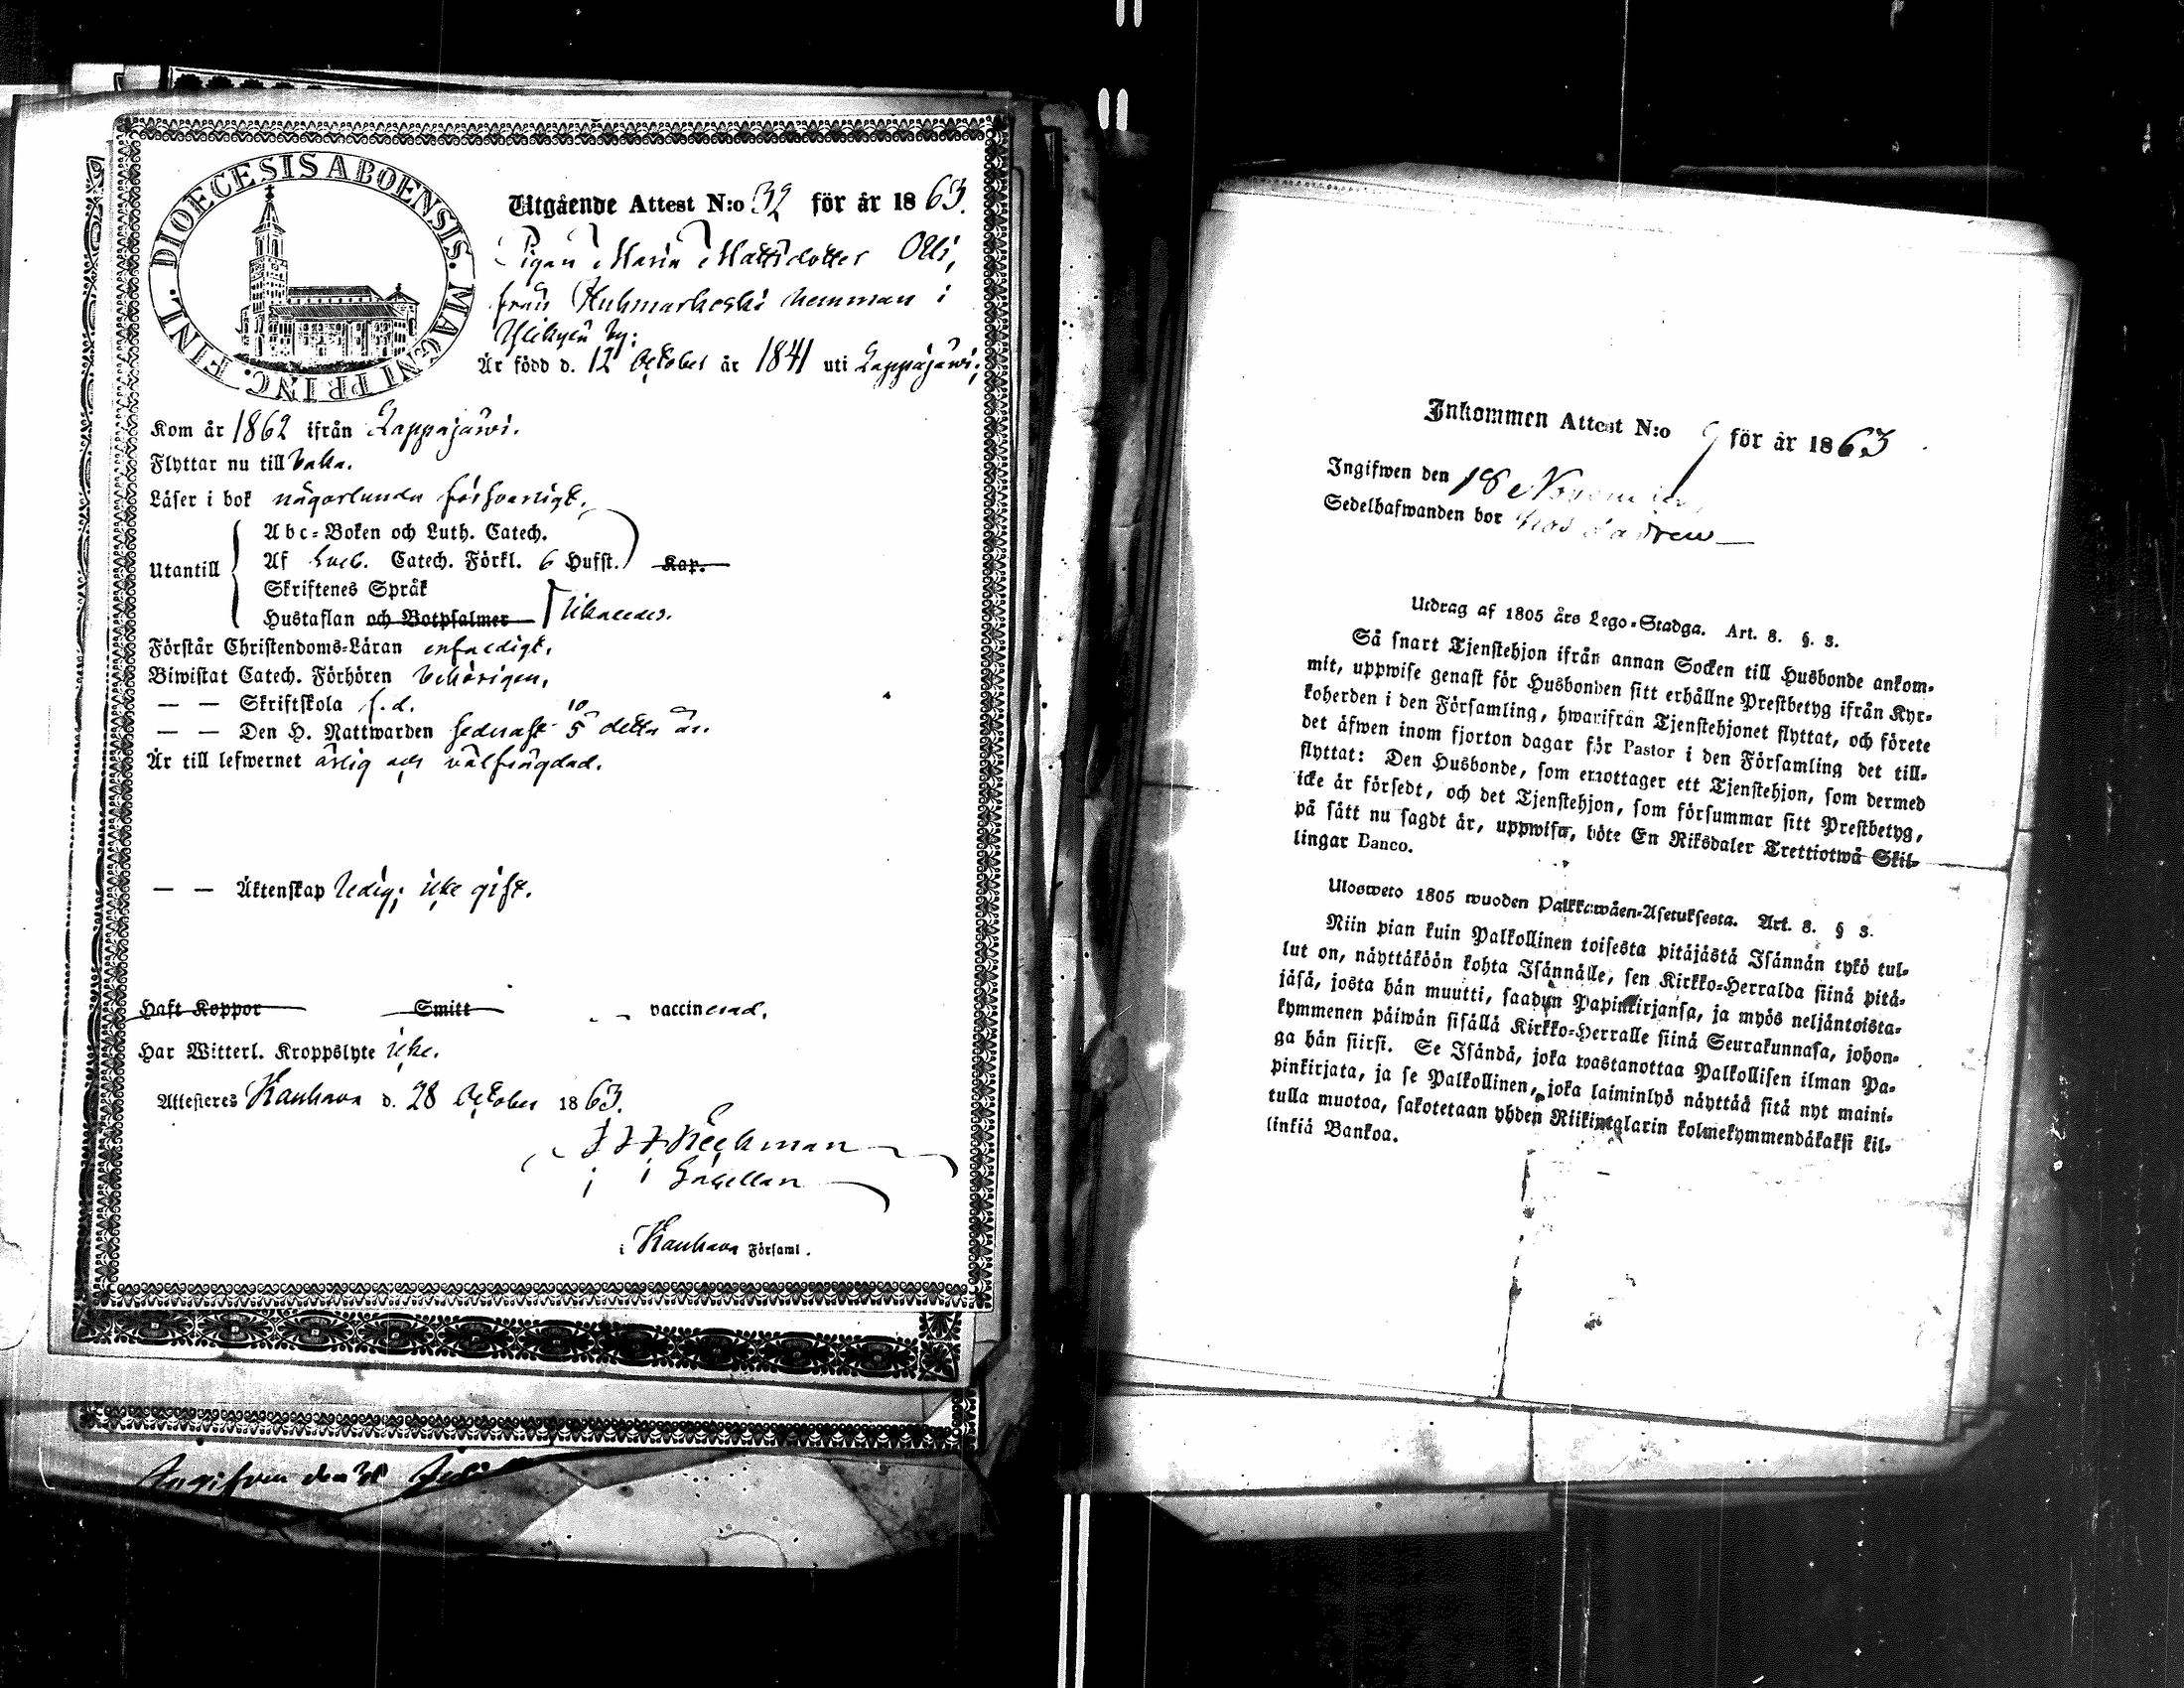 DIOECESIS ABOENSIS. MAGNI PRINC. FINL.
Utgående Attest N:o 32 för år 1863.
Pigan Maria Mattsdotter Olli,
från Kuhmarkoski hemman i
Ylikylä by;
Är född d. 12 October år 1841 uti Lappajäwi;
Kom år 1862 ifrån Lappajäwi.
Flyttar nu till baka.
Läser i bok någorlunda försvarligt.
Utantill
Abc-Boken och Luth. Catech.
Af Sveb. Catech. Förkl. 6 Hufst. Kap.
Skriftenes Språk
Hustaflan och Botpsalmer
Förstår Christendoms-Läran enfaldigt.
Biwistat Catech. Förhören behörigen.
— — Skriftskola f. d.
— — Den H. Nattwarden sednast 5/10 detta år.
Är till lefwernet ärlig och välfrägdad.
— — Äktenskap ledig; icke gift.
Haft Koppor Smitt vaccinerad.
Har Witterl. Kroppslyte icke.
Attesteres Kauhava d. 28 October 1863.
i Kauhava Församl.
Ingifven den
Inkommen Attest N:o 9 för år 1863
Ingifwen den 18 November
Sedelhafwanden bor hos
Utdrag af 1805 års Lego-Stadga. Art. 8. §. 3.
Så snart Tjenstehjon ifrån annan Socken till Husbonde ankom-
mit, uppwise genast för Husbonden sitt erhållne Prestbetyg ifrån Kyr-
koherden i den Församling, hwarifrån Tjenstehjonet flyttat, och förete
det äfwen inom fjorton dagar för Pastor i den Församling det till-
flyttat: Den Husbonde, som emottager ett Tjenstehjon, som dermed
icke är försedt, och det Tjenstehjon, som försummar sitt Prestbetyg,
på sätt nu sagdt är, uppwisa, böte En Riksdaler Trettiotwå Skil-
lingar Banco.
Ulosweto 1805 wuoden Palkkawäen-Asetuksesta. Art. 8. § 3.
Niin pian kuin Palkollinen toisesta pitäjästä Isännän tykö tul-
lut on, näyttäköön kohta Isännälle, sen Kirkko-Herralda siinä pitä-
jäsä, josta hän muutti, saadun Papinkirjansa, ja myös neljäntoista-
kymmenen päiwän sisällä Kirkko-Herralle siinä Seurakunnasa, johon-
ga hän siirsi. Se Isändä, joka wastanottaa Palkollisen ilman Pa-
pinkirjata, ja se Palkollinen, joka laiminlyö näyttää sitä nyt maini-
tulla muotoa, sakotetaan yhden Riikintalarin kolmekymmendäkaksi kil-
linkiä Bankoa.